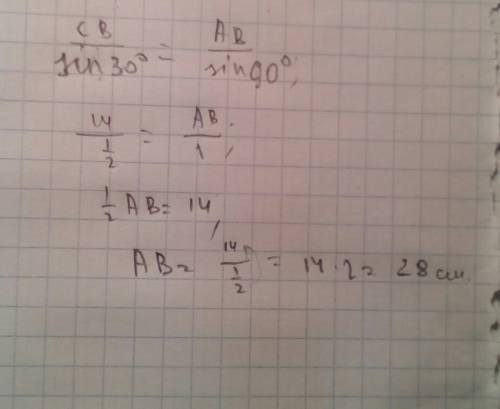 CB/sin 30° = AB/sin 90°,
14/(1/2) = AB/1;
1/2 AB = 14,
AB = 14/(1/2) = 14 · 2 = 28 см.